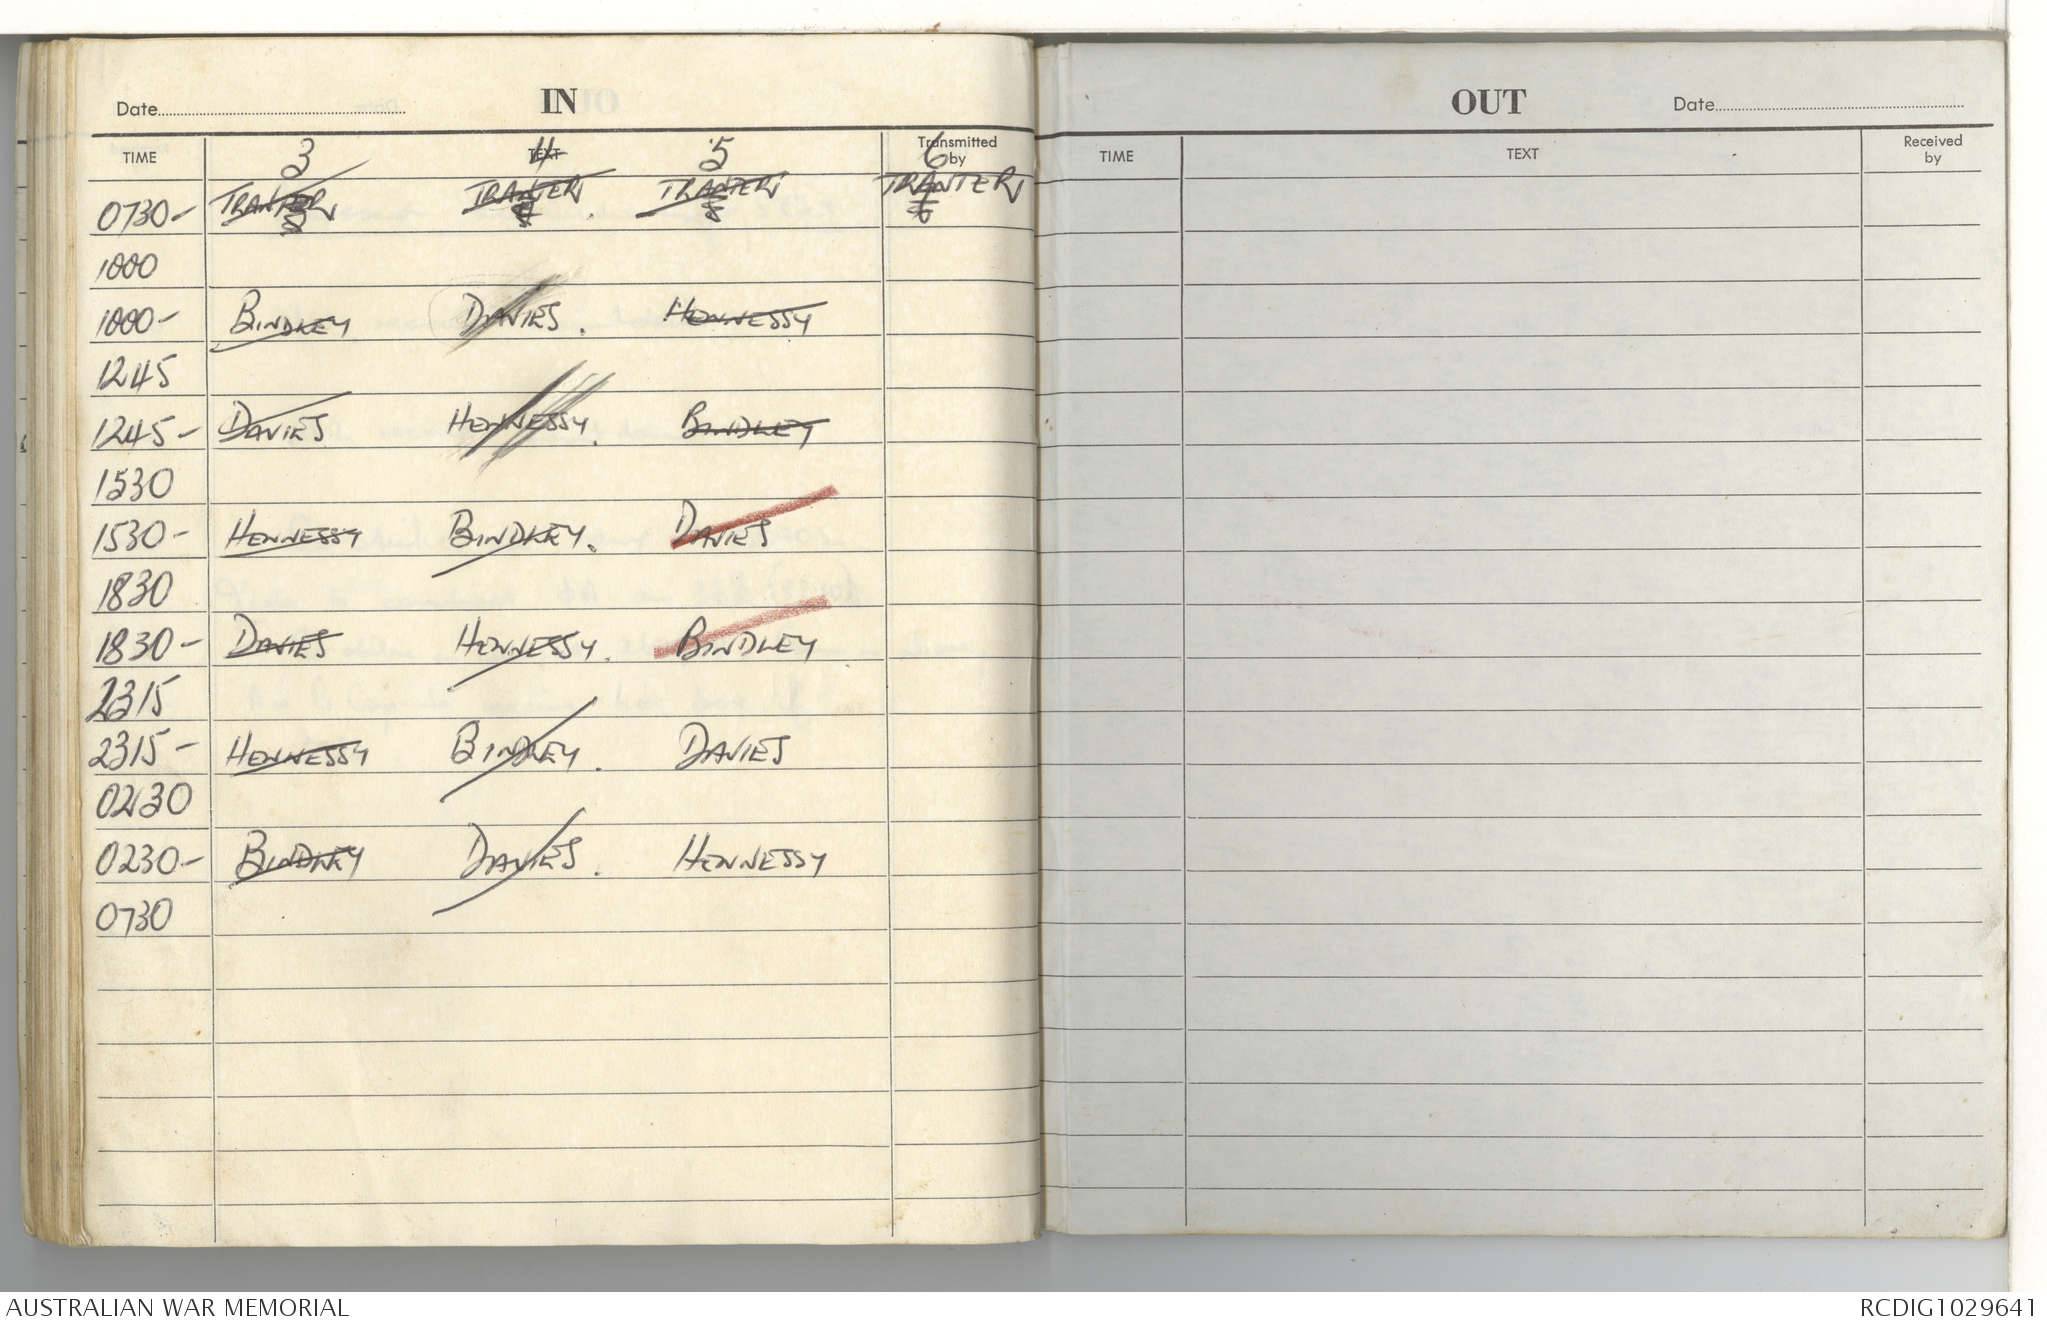 Date IN
3 4 5 6
TIME TEXT Transmitted by
0730- TRANTER TRANTER TRANTER TRANTER
1000
1000- BINDLEY DAVIES. HENNESSY
1245
1245- DAVIES HENNESSY. BINDLEY
1530
1530- HENNESSY BINDLEY. DAVIES
1830
1830- DAVIES HENNESSY. BINDLEY
2315
2315- HENNESSY BINDLEY. DAVIES
0230
0230- BINDLEY DAVIES. HENNESSY
0730
OUT Date
TIME TEXT Received by
AUSTRALIAN WAR MEMORIAL RCDIG1029641